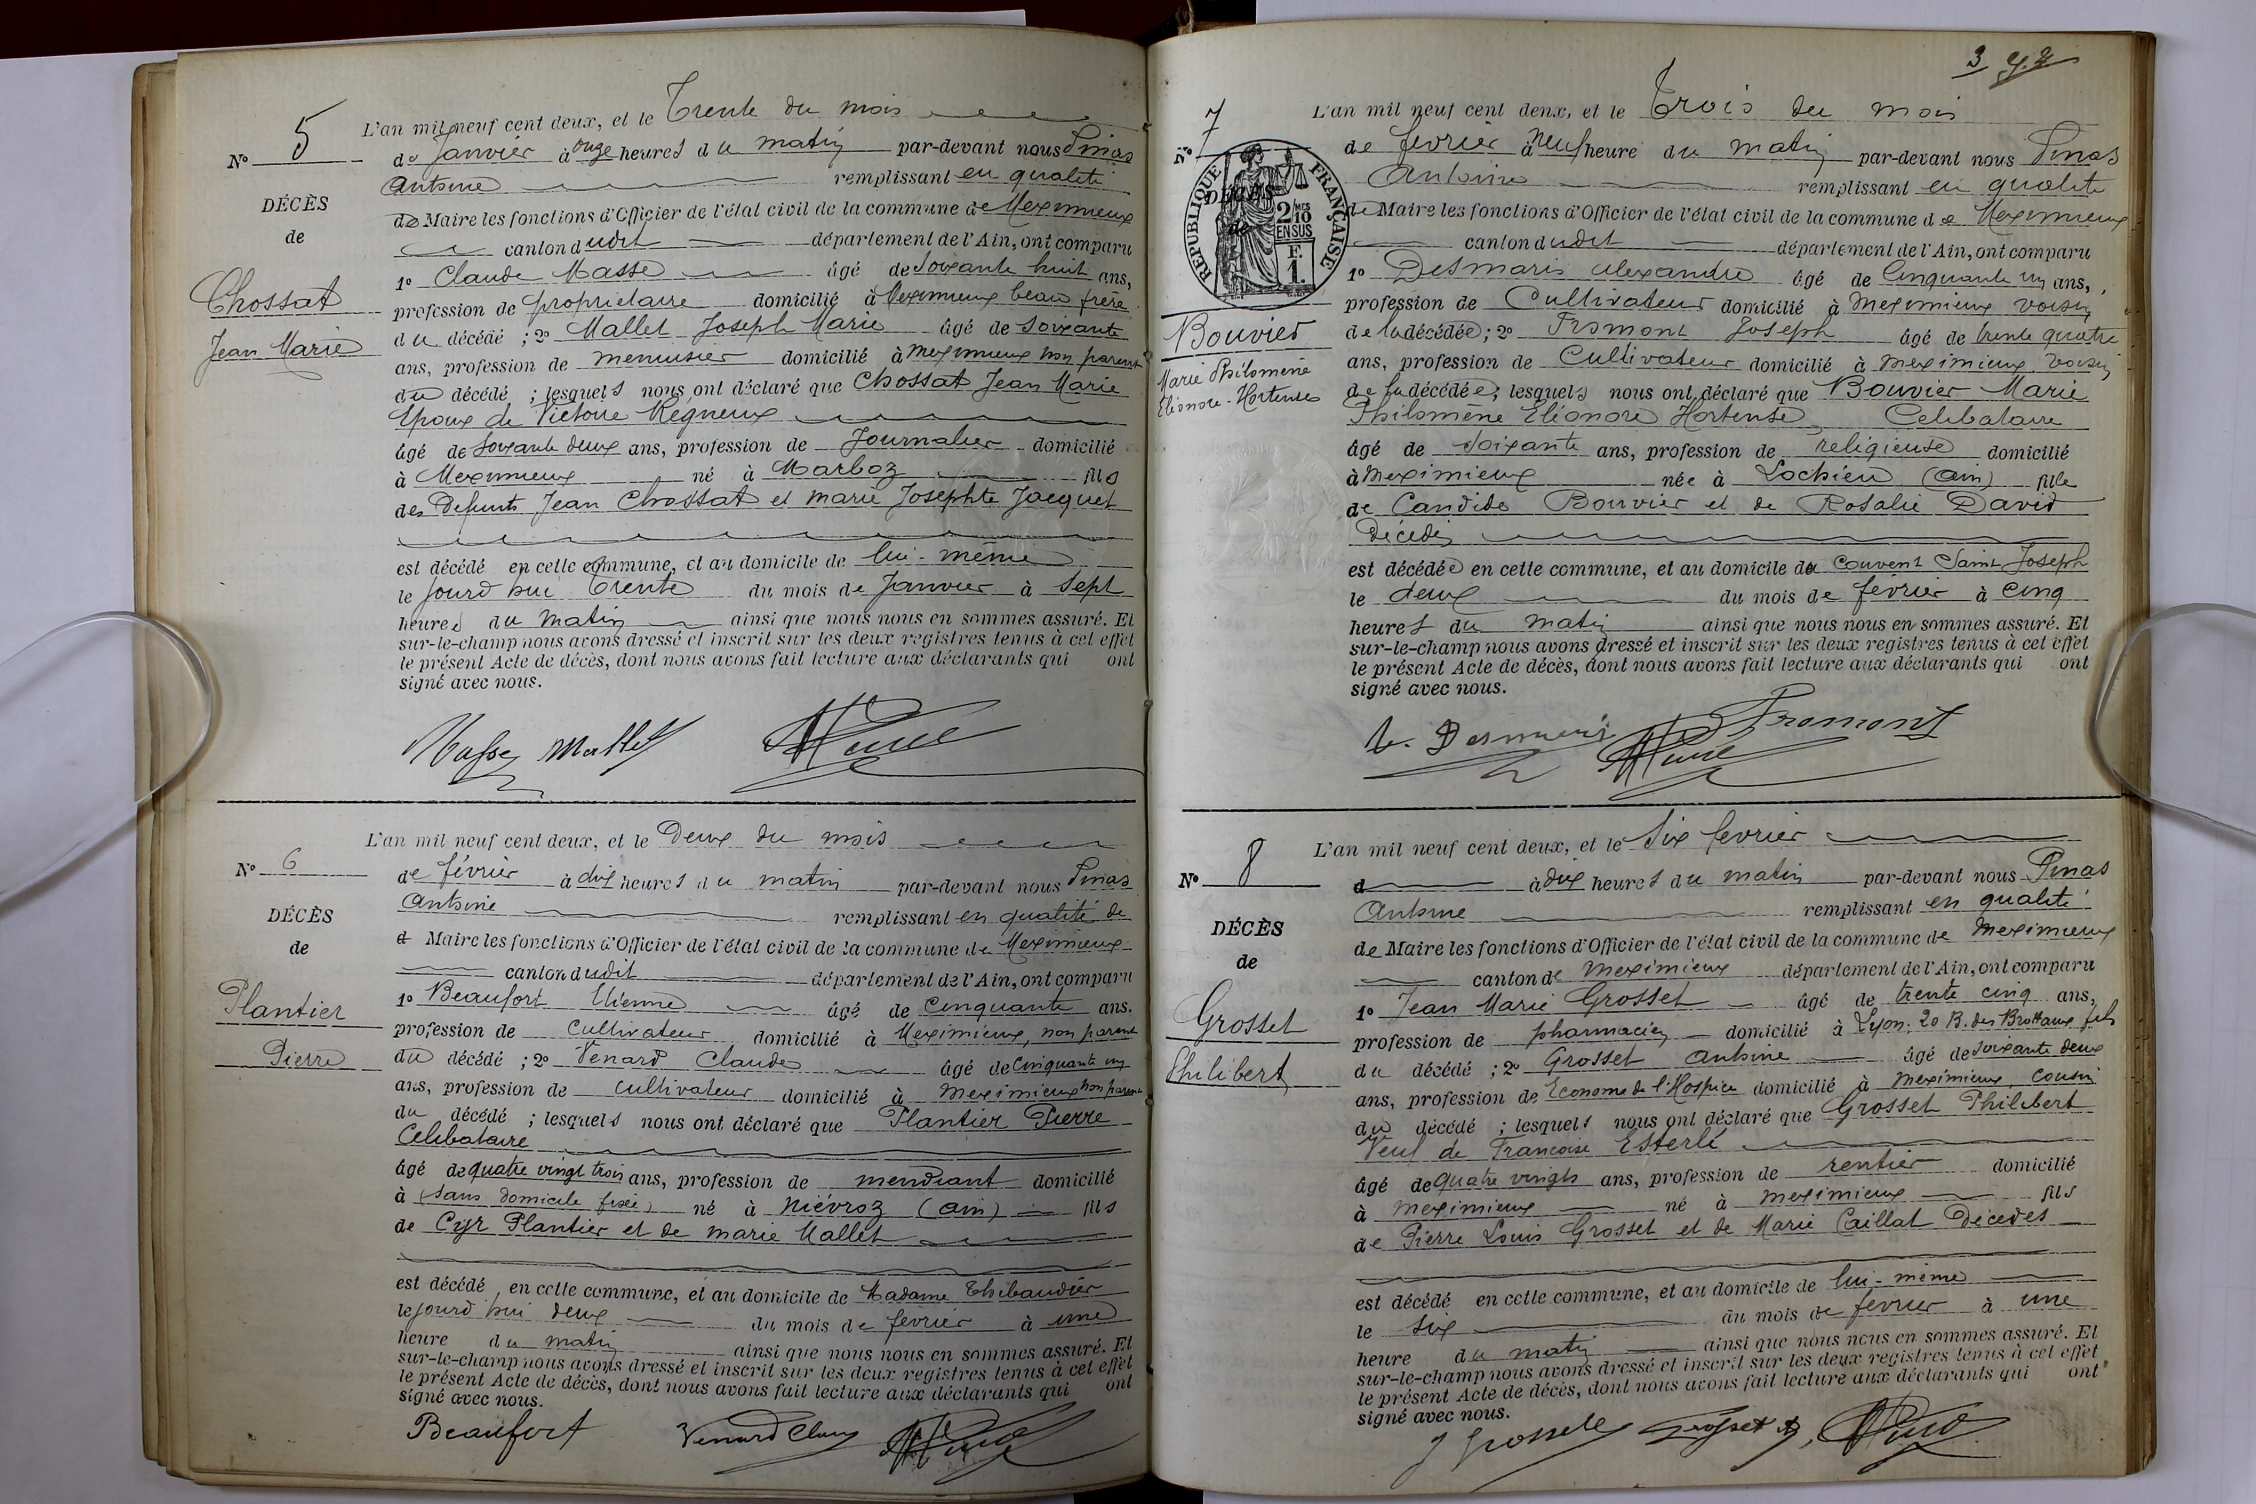 L'an mil neuf cent deux, et le Trente du mois
No 5 de Janvier à onze heures du matin par-devant nous Pinas
Antoine remplissant en qualité
DÉCÈS de Maire les fonctions d'Officier de l'état civil de la commune de Meximieux
de canton dudit département de l'Ain, ont comparu
1o Claude Masse âgé de Soixante huit ans,
Chossat profession de propriétaire domicilié à Meximieux beau frère
Jean Marie du décédé ; 2o Mallet Joseph Marie âgé de soixante
ans, profession de menuisier domicilié à Meximieux non parent
du décédé ; lesquels nous ont déclaré que Chossat Jean Marie
Epoux de Victoire Regneux
âgé de Soixante deux ans, profession de Journalier domicilié
à Meximieux né à Marboz fils
des Defunts Jean Chossat et Marie Josephte Jacquet
est décédé en cette commune, et au domicile de lui-même
le jourd'hui Trente du mois de Janvier à sept
heures du matin ainsi que nous nous en sommes assuré. Et
sur-le-champ nous avons dressé et inscrit sur les deux registres tenus à cet effet
le présent Acte de décès, dont nous avons fait lecture aux déclarants qui ont
signé avec nous.
Masse Mallet
L'an mil neuf cent deux, et le Deux du mois
No 6 de février à dix heures du matin par-devant nous Pinas
Antoine remplissant en qualité de
DÉCÈS d Maire les fonctions d'Officier de l'état civil de la commune de Meximieux
de canton dudit département de l'Ain, ont comparu
1o Beaufort Etienne âgé de Cinquante ans.
Plantier profession de cultivateur domicilié à Meximieux, non parent
Pierre du décédé ; 2o Venard Claude âgé de Cinquante un
ans, profession de cultivateur domicilié à Meximieux non parent
du décédé ; lesquels nous ont déclaré que Plantier Pierre
Célibataire
âgé de quatre vingt trois ans, profession de mendiant domicilié
à (sans domicile fixe) né à Niévroz (ain) fils
de Cyr Plantier et de marie Mallet
est décédé en cette commune, et au domicile de Madame Thibaudier
le jourd'hui deux du mois de février à une
heure du matin ainsi que nous nous en sommes assuré. Et
sur-le-champ nous avons dressé et inscrit sur les deux registres tenus à cet effet
le présent Acte de décès, dont nous avons fait lecture aux déclarants qui ont
signé avec nous.
Beaufort Venard Claude
3
L'an mil neuf cent deux, et le Trois du mois
No 7 de février à neuf heure du matin par-devant nous Pinas
Antoine remplissant en qualité
RÉPUBLIQUE FRANÇAISE
2/10 MES EN SUS
F. 1.
DÉCÈS de Maire les fonctions d'Officier de l'état civil de la commune de Meximieux
de canton dudit département de l'Ain, ont comparu
1o Desmaris Alexandre âgé de Cinquante un ans,
profession de Cultivateur domicilié à Meximieux voisin
Bouvier de la décédée ; 2o Fromont Joseph âgé de trente quatre
Marie Philomène ans, profession de Cultivateur domicilié à Meximieux voisin
Eléonore-Hortense de la décédée ; lesquels nous ont déclaré que Bouvier Marie
Philomène Eléonore Hortense Célibataire
âgé de soixante ans, profession de religieuse domicilié
à Meximieux née à Lochieu (ain) fille
de Candide Bouvier et de Rosalie David
Décédés
est décédée en cette commune, et au domicile du Couvent Saint Joseph
le deux du mois de février à cinq
heures du matin ainsi que nous nous en sommes assuré. Et
sur-le-champ nous avons dressé et inscrit sur les deux registres tenus à cet effet
le présent Acte de décès, dont nous avons fait lecture aux déclarants qui ont
signé avec nous.
Fromont
L'an mil neuf cent deux, et le Six février
No 8 d à dix heures du matin par-devant nous Pinas
Antoine remplissant en qualité
DÉCÈS de Maire les fonctions d'Officier de l'état civil de la commune de Meximieux
de canton de Meximieux département de l'Ain, ont comparu
1o Jean Marie Grosset âgé de trente cinq ans,
Grosset profession de pharmacien domicilié à Lyon. 20 B. des Brotteaux fils
Philibert du décédé ; 2o Grosset Antoine âgé de soixante deux
ans, profession de Econome de l'Hospice domicilié à Meximieux, cousin
du décédé ; lesquels nous ont déclaré que Grosset Philibert
Veuf de Francoise Esterlé
âgé de quatre vingts ans, profession de rentier domicilié
à Meximieux né à Meximieux fils
de Pierre Louis Grosset et de Marie Caillat Décédés
est décédé en cette commune, et au domicile de lui-même
le six du mois de février à une
heure du matin ainsi que nous nous en sommes assuré. Et
sur-le-champ nous avons dressé et inscrit sur les deux registres tenus à cet effet
le présent Acte de décès, dont nous avons fait lecture aux déclarants qui ont
signé avec nous.